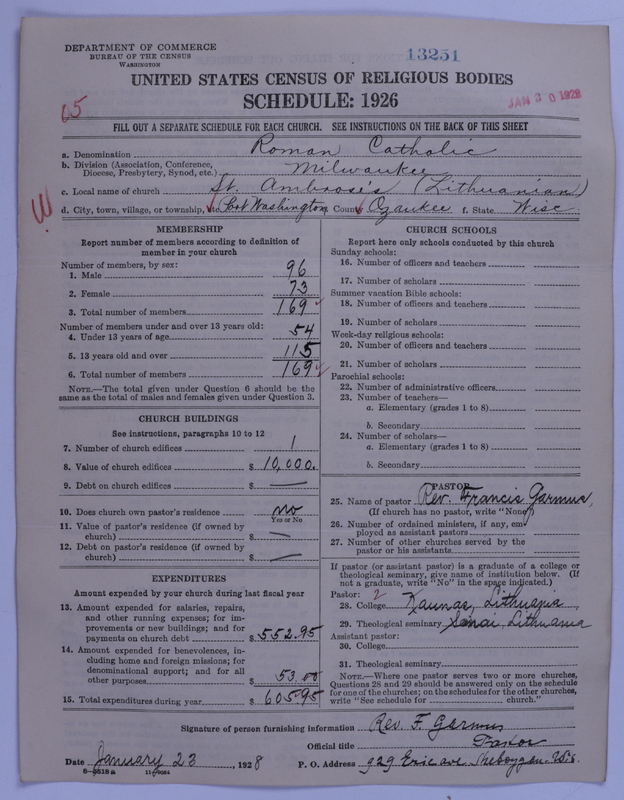 DEPARTMENT OF COMMERCE
BUREAU OF THE CENSUS
WASHINGTON
13251
UNITED STATES CENSUS OF RELIGIOUS BODIES
SCHEDULE: 1926
65
JAN 30 1928
FILL OUT A SEPARATE SCHEDULE FOR EACH CHURCH. SEE INSTRUCTIONS ON THE BACK OF THIS SHEET
a. Denomination Roman Catholic
b. Division (Association, Conference, Diocese, Presbytery, Synod, etc.) Milwaukee
c. Local name of church St. Ambrose's (Lithuanian)
d. City, town, village, or township, etc. Port Washington County Ozaukee f. State Wisc
MEMBERSHIP
Report number of members according to definition of
member in your church
Number of members, by sex:
1. Male 96
2. Female 73
3. Total number of members 169
Number of members under and over 13 years old:
4. Under 13 years of age 54
5. 13 years old and over 115
6. Total number of members 169
NOTE.—The total given under Question 6 should be the
same as the total of males and females given under Question 3.
CHURCH BUILDINGS
See instructions, paragraphs 10 to 12
7. Number of church edifices 1
8. Value of church edifices $ 10,000.
9. Debt on church edifices $ —
10. Does church own pastor's residence no
Yes or No
11. Value of pastor's residence (if owned by
church) $ —
12. Debt on pastor's residence (if owned by
church) $ —
EXPENDITURES
Amount expended by your church during last fiscal year
13. Amount expended for salaries, repairs,
and other running expenses; for im-
provements or new buildings; and for
payments on church debt $ 552.95
14. Amount expended for benevolences, in-
cluding home and foreign missions; for
denominational support; and for all
other purposes $ 53.00
15. Total expenditures during year $ 605.95
CHURCH SCHOOLS
Report here only schools conducted by this church
Sunday schools:
16. Number of officers and teachers
17. Number of scholars
Summer vacation Bible schools:
18. Number of officers and teachers
19. Number of scholars
Week-day religious schools:
20. Number of officers and teachers
21. Number of scholars
Parochial schools:
22. Number of administrative officers
23. Number of teachers—
a. Elementary (grades 1 to 8)
b. Secondary
24. Number of scholars—
a. Elementary (grades 1 to 8)
b. Secondary
PASTOR
25. Name of pastor Rev. Francis Garmus,
(If church has no pastor, write "None")
26. Number of ordained ministers, if any, em-
ployed as assistant pastors
27. Number of other churches served by the
pastor or his assistants
If pastor (or assistant pastor) is a graduate of a college or
theological seminary, give name of institution below. (If
not a graduate, write "No" in the space indicated.)
Pastor: 2
28. College Kaunas, Lithuania
29. Theological seminary Lithuania
Assistant pastor:
30. College
31. Theological seminary
NOTE.—Where one pastor serves two or more churches,
Questions 28 and 29 should be answered only on the schedule
for one of the churches; on the schedules for the other churches,
write "See schedule for church."
Signature of person furnishing information Rev. F. Garmus
Official title Pastor
Date January 23, 1928 P. O. Address 929 Erie ave. Sheboygan, Wis.